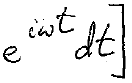 e^{iωt} dt]